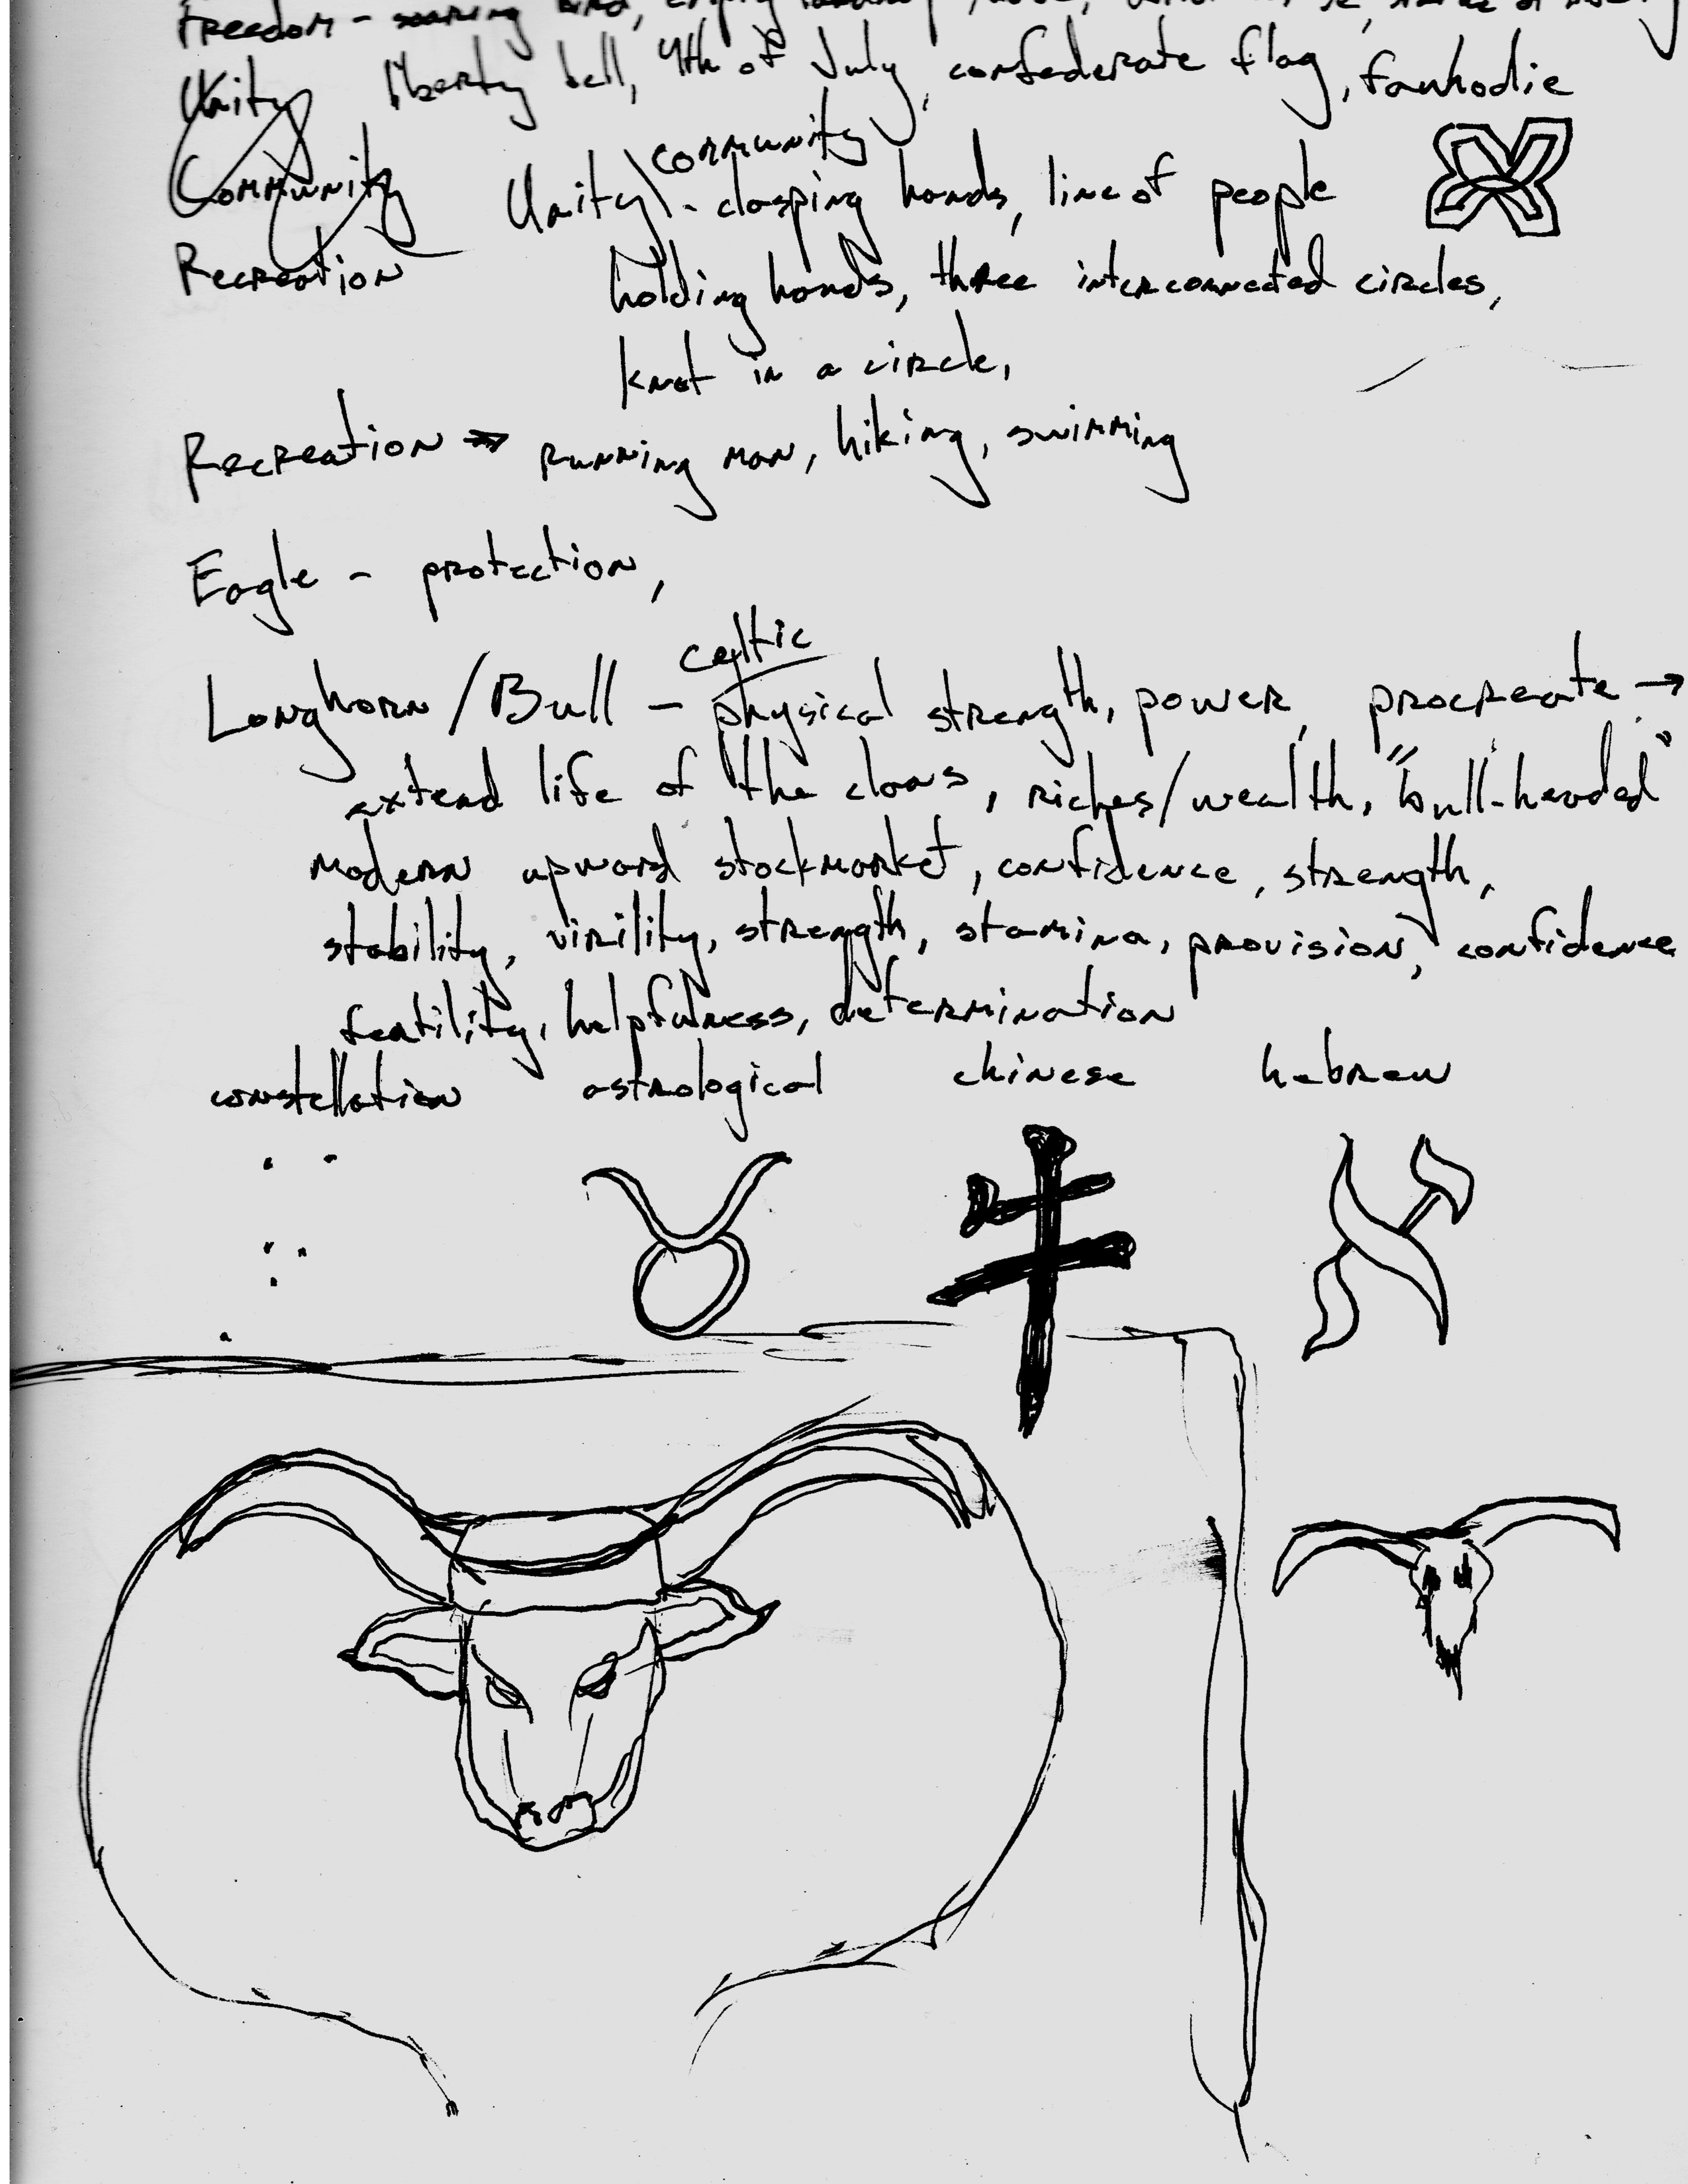 Freedom - soaring bird, empty
Unity liberty bell, 4th of July, confederate flag, fawhodie
Community Unity \ community - clasping hands, line of people
Recreation holding hands, three interconnected circles,
knot in a circle,
Recreation → running man, hiking, swimming
Eagle - protection,
celtic
Longhorn / Bull - physical strength, power, procreate →
extend life of the clans, riches/wealth, "bull-headed"
modern upward stockmarket, confidence, strength,
stability, virility, strength, stamina, provision, confidence
fertility, helpfulness, determination
constellation astrological chinese hebrew
牛 א